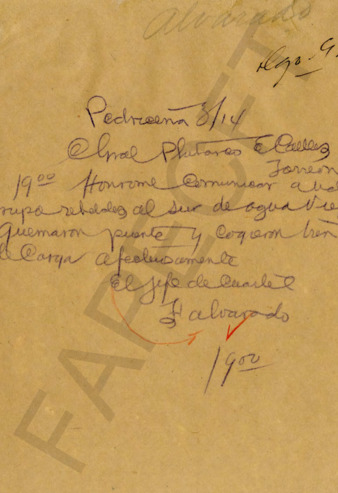 Alvarado
Pedriceña 3/14
Gral Plutarco E Calles
Torreon
1900 Honrome comunicar a Ud
rupo rebeldes al sur de agua
Quemaron puente y cogieron tren
de Carga afectuosamente
El jefe de Cuartel
F alvarado
1900
FAPECFT